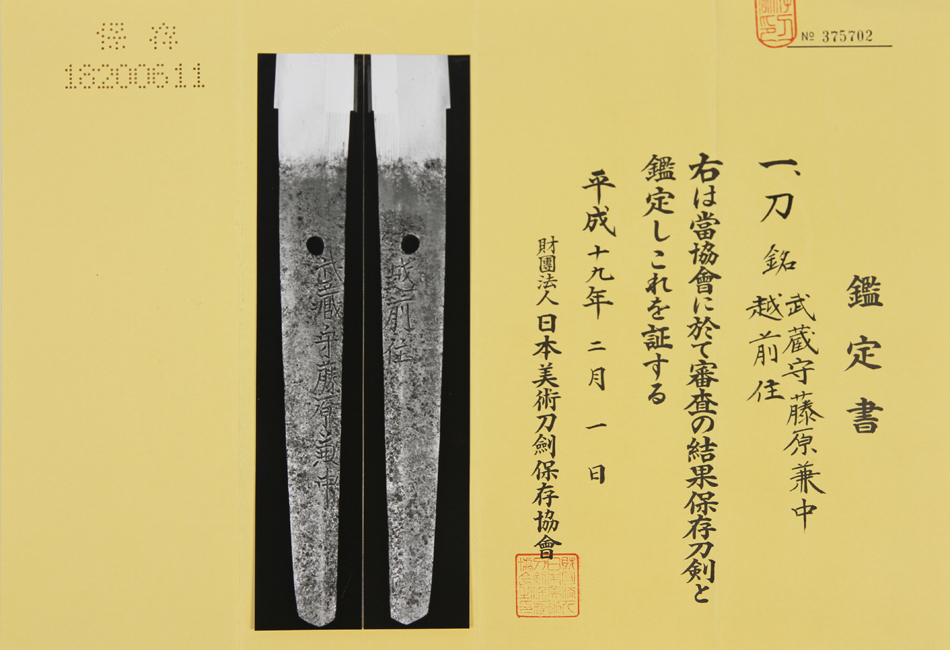 № 375702
鑑定書
一、刀 銘 武蔵守藤原兼中
越前住
右は當協會に於て審査の結果保存刀剣と
鑑定しこれを証する
平成十九年 二月 一日
財團法人 日本美術刀劍保存協會
越前住
武藏守藤原兼中
保存
18200611